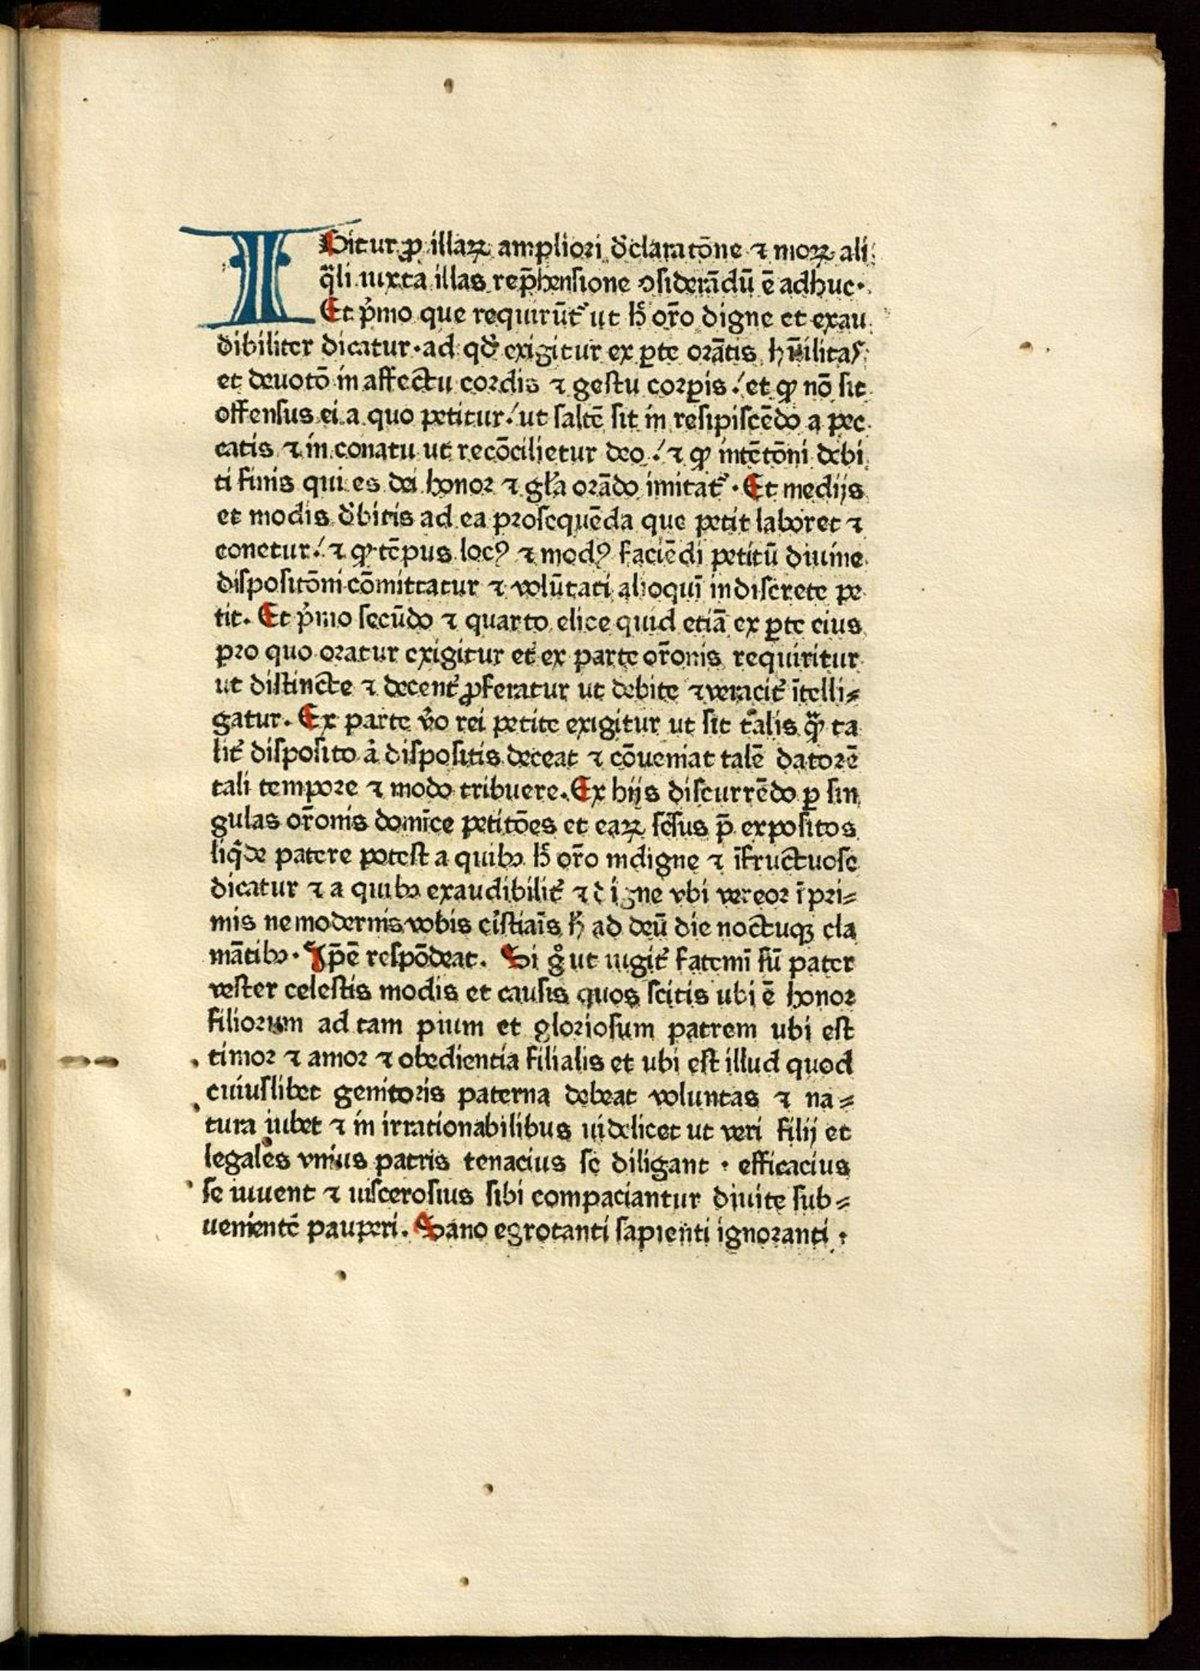 IGitur ꝓ illaꝝ ampliori dclaratōne ⁊ moꝝ ali
q̄li iuxta illas rep̄hensione ꝯsiderādū ē adhuc.
Et p̄mo que requirūt᷑ ut h̄ or̄o digne et exau
dibiliter dicatur. ad qd̄ exigitur ex ꝑte orātis hūilitas
et deuotō in affectu cordis ⁊ gestu corꝑis / et ꝙ nō sit
offensus ei a quo petitur / ut saltē sit in resipiscēdo a pec
catis ⁊ in conatu ut recōcilietur deo / ⁊ ꝙ intētōni debi
ti finis qui es dei honor ⁊ gl̄a orādo imitat᷑. Et medijs
et modis dbitis ad ea prosequēda que petit laboret ⁊
conetur / ⁊ ꝙ tēpus locꝰ ⁊ modꝰ faciēdi petitū diuine
dispositōni cōmittatur ⁊ volūtati alioquī indiscrete pe
tit. Et p̄mo secūdo ⁊ quarto elice quid etiā ex ꝑte eius
pro quo oratur exigitur et ex parte or̄onis requiritur
ut distincte ⁊ decent᷑ ꝓferatur ut debite ⁊ veracit᷑ ītelli-
gatur. Ex parte v̄o rei petite exigitur ut sit t̄alis q̄ꝫ ta
lit᷑ disposito a dispositis deceat ⁊ cōueniat talē datorē
tali tempore ⁊ modo tribuere. Ex hijs discurrēdo ꝑ sin
gulas or̄onis domīce petitōes et eaꝝ sēsus p̄ expositos
liq̄de patere potest a quibꝫ h̄ or̄o indigne ⁊ īfructuose
dicatur ⁊ a quibꝫ exaudibilit᷑ ⁊ digne vbi vereor īpri-
mis ne modernis vobis cr̄istiaīs h̄ ad deū die noctuqꝫ cla
mātibꝫ. Ip̄e respōdeat. Si gͦ ut iugit᷑ fatemī sū pater
vester celestis modis et causis quos scitis ubi ē honor
filiorum ad tam pium et gloriosum patrem ubi est
timor ⁊ amor ⁊ obedientia filialis et ubi est illud quod
cuiuslibet genitoris paterna debeat voluntas ⁊ na-
tura iubet ⁊ in irrationabilibus uidelicet ut veri filij et
legales vnius patris tenacius se diligant . efficacius
se iuuent ⁊ uiscerosius sibi compaciantur diuite sub-
uenientē pauperi. Sano egrotanti sapienti ignoranti .